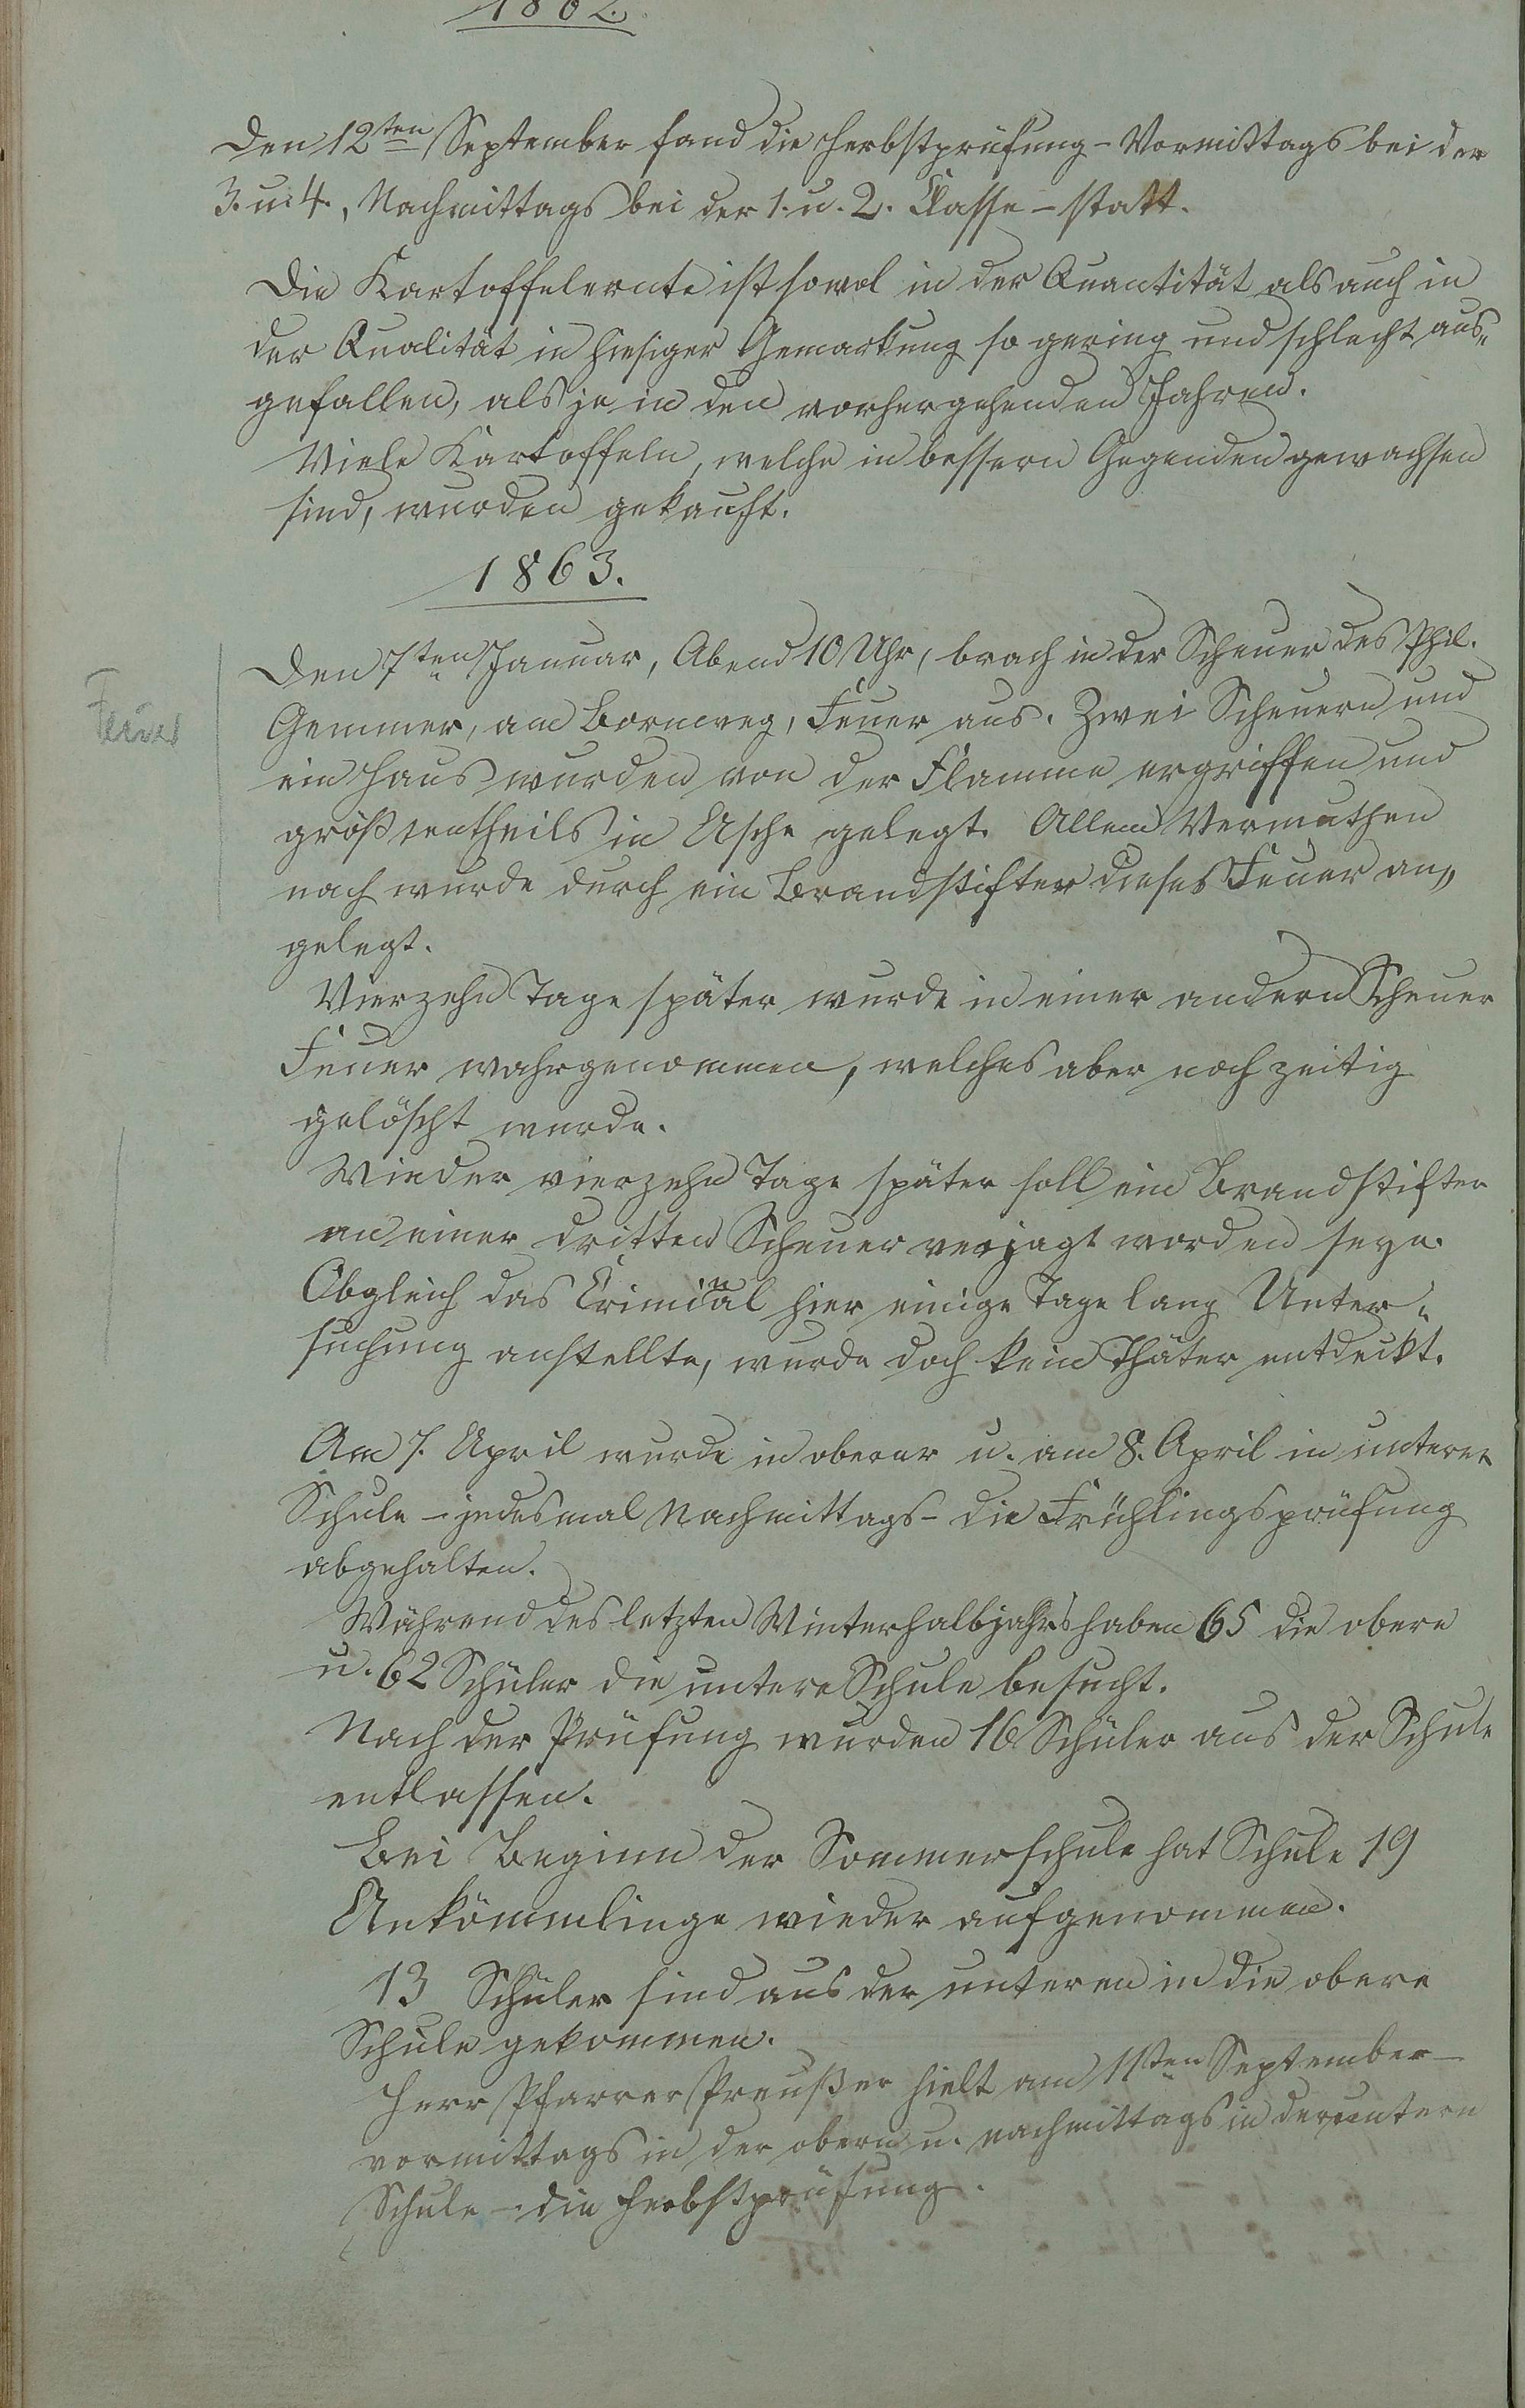 1862.
Den 12ten September fand die Herbstprüfung - Vormittags bei der
3. u. 4., Nachmittags bei der 1. u. 2. Classe - statt.
Die Kartoffelernte ist sowol in der Quantität als auch in
der Qualität in hiesiger Gemarkung so gering und schlecht aus-
gefallen, als je in den vorhergehenden Jahren.
Viele Kartoffeln, welche in bessern Gegenden gewachsen
sind, wurden gekauft.
1863.
Den 7ten Januar, Abend 10 Uhr, brach in der Scheuer des Phil.
Gemmer, am Bornweg, Feuer aus. Zwei Scheuern und
Feuer
ein Haus wurden von der Flamme ergriffen und
größtentheils in Asche gelegt. Allem Vermuthen
nach wurde durch ein Brandstifter dieses Feuer an-
gelegt.
Vierzehn Tage später wurde in einer andern Scheuer
Feuer wahrgenommen, welches aber noch zeitig
gelöscht wurde.
Wieder vierzehn Tage später soll ein Brandstifter
an einer dritten Scheuer verjagt worden seyn.
Obgleich das Criminal hier einige Tage lang Unter-
suchung anstellte, wurde doch kein Thäter entdeckt.
Am 7. April wurde in oberer u. am 8. April in unterer
Schule - jedesmal Nachmittags - die Frühlingsprüfung
abgehalten.
Während des letzten Winterhalbjahrs haben 65 die obere
u. 62 Schüler die untere Schule besucht.
Nach der Prüfung wurden 16 Schüler aus der Schule
entlassen.
Bei Beginn der Sommerschule hat Schule 19
Ankömmlinge wieder aufgenommen.
13 Schüler sind aus der unteren in die obere
Schule gekommen.
Herr Pfarrer Preußer hielt am 11ten September -
vormittags in der obern u. nachmittags in der untern
Schule - die Herbstprüfung.